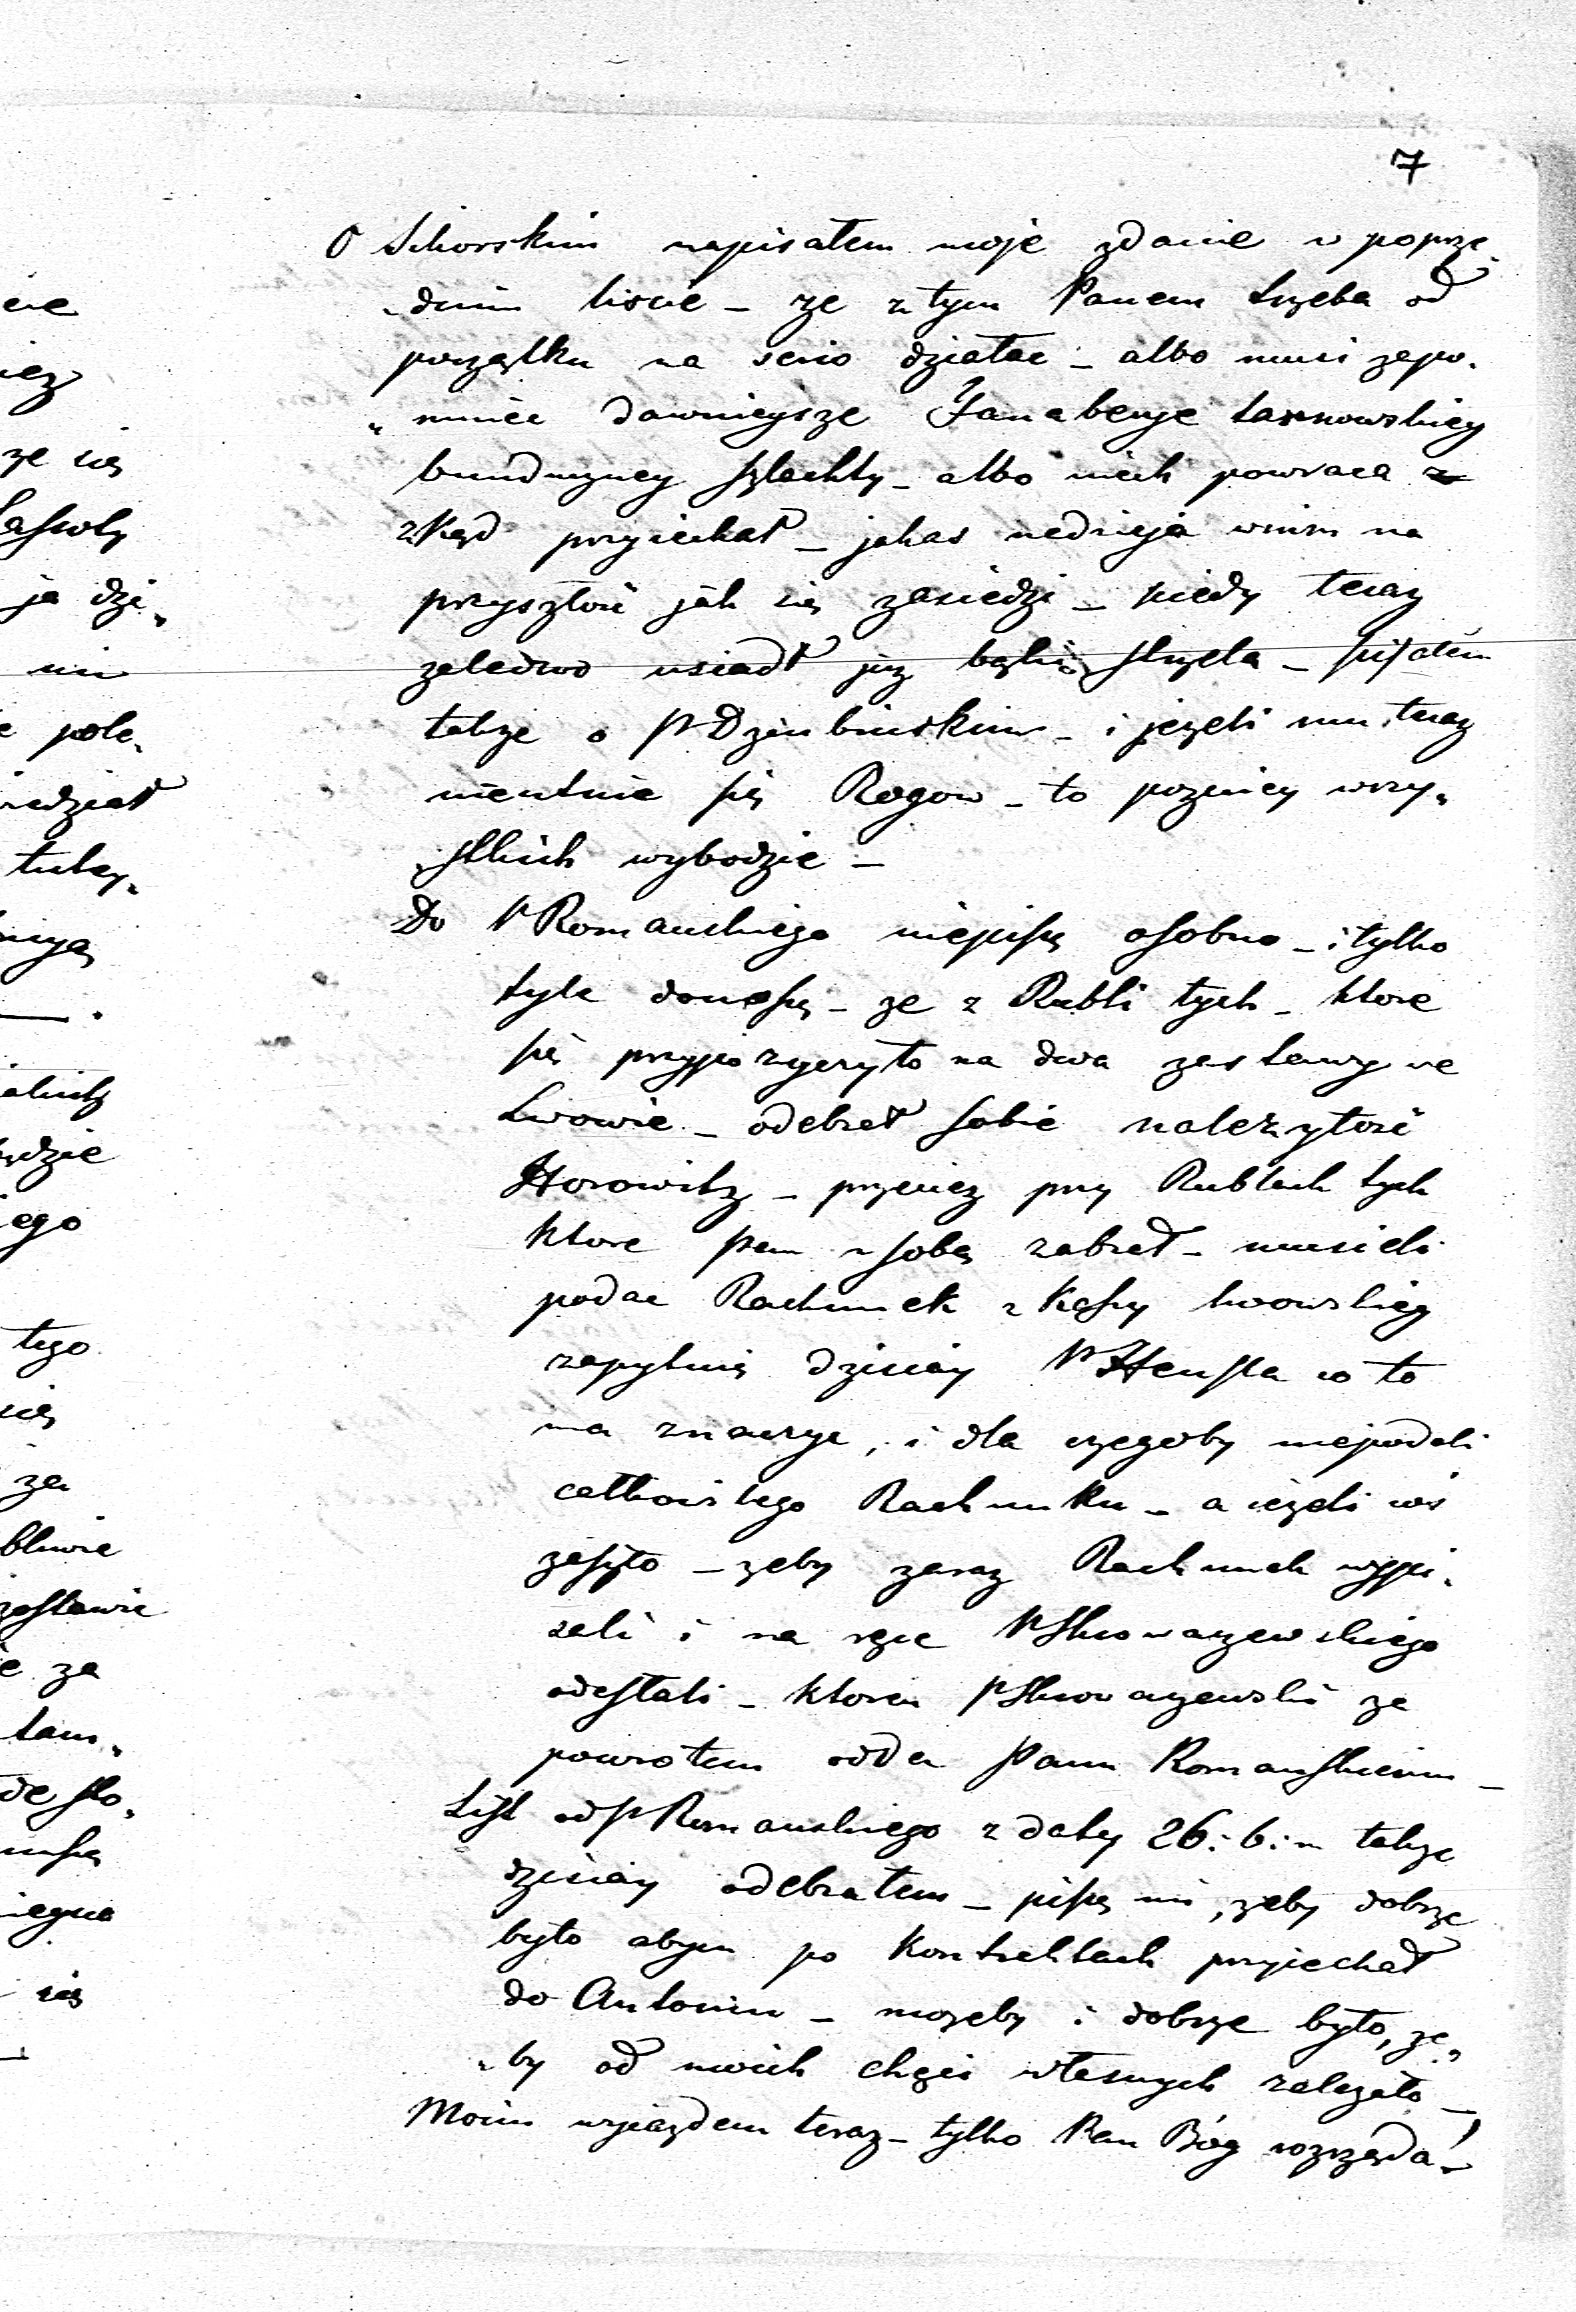 7
O Sikorskim napisałem moje zdanie w poprze„
„dnim liscie – ze z tym Panem trzeba od
początku na serio działac – albo musi zapo„
„mniec dawnieysze tarnowskiey
szlachty – albo niech powraca
zkąd przyiechał – jakas nadzieja w nim na
przyszłosć jak się zasiedzi – kiedy teraz
zaledwo usiadł juz bąki strzela – pisałem
takze o P Dziubinskim – i jezeli mu teraz
nieutnie się Rogow – to pozniey wszy„
„stkich wybodzie –
Do P Romanskiego niepiszę osobno – i tylko
tyle donoszę – ze z Rubli tych – ktore
się przypozyczyło na dwa zastawy we
Lwowie – odebrał sobie nalezytosć
Horowitz – przeciez przy Rublach tych
ktore Pan z sobą zabrał – musieli
podac Rachunek z Kassy lwowskiey
zapytuię dzisiay P Hensla co to
ma znaczyc, i dla czegoby niepodali
całkowitego Rachunku – a iezeli cos
zaszło – zeby zaraz Rachunek wypi„
sali i na ręce P Skowaczewskiego
odesłali – ktoren P Skowaczewski za
powrotem odda Panu Romanskiemu –
List od P Romanskiego z daty 26: b: m takze
dzisiay odebrałem – pisze mi, zeby dobrze
było abym po Kontraktach przyiechał
do Antonin – mozeby i dobrze było, ze„
„by od moich chęci własnych zalezało –
Moim wyiazdem teraz – tylko Pan Bóg rozrządza! –
ze się
ja dzi„
nie
pole„
tego
się
za
ego
za
tam„
się